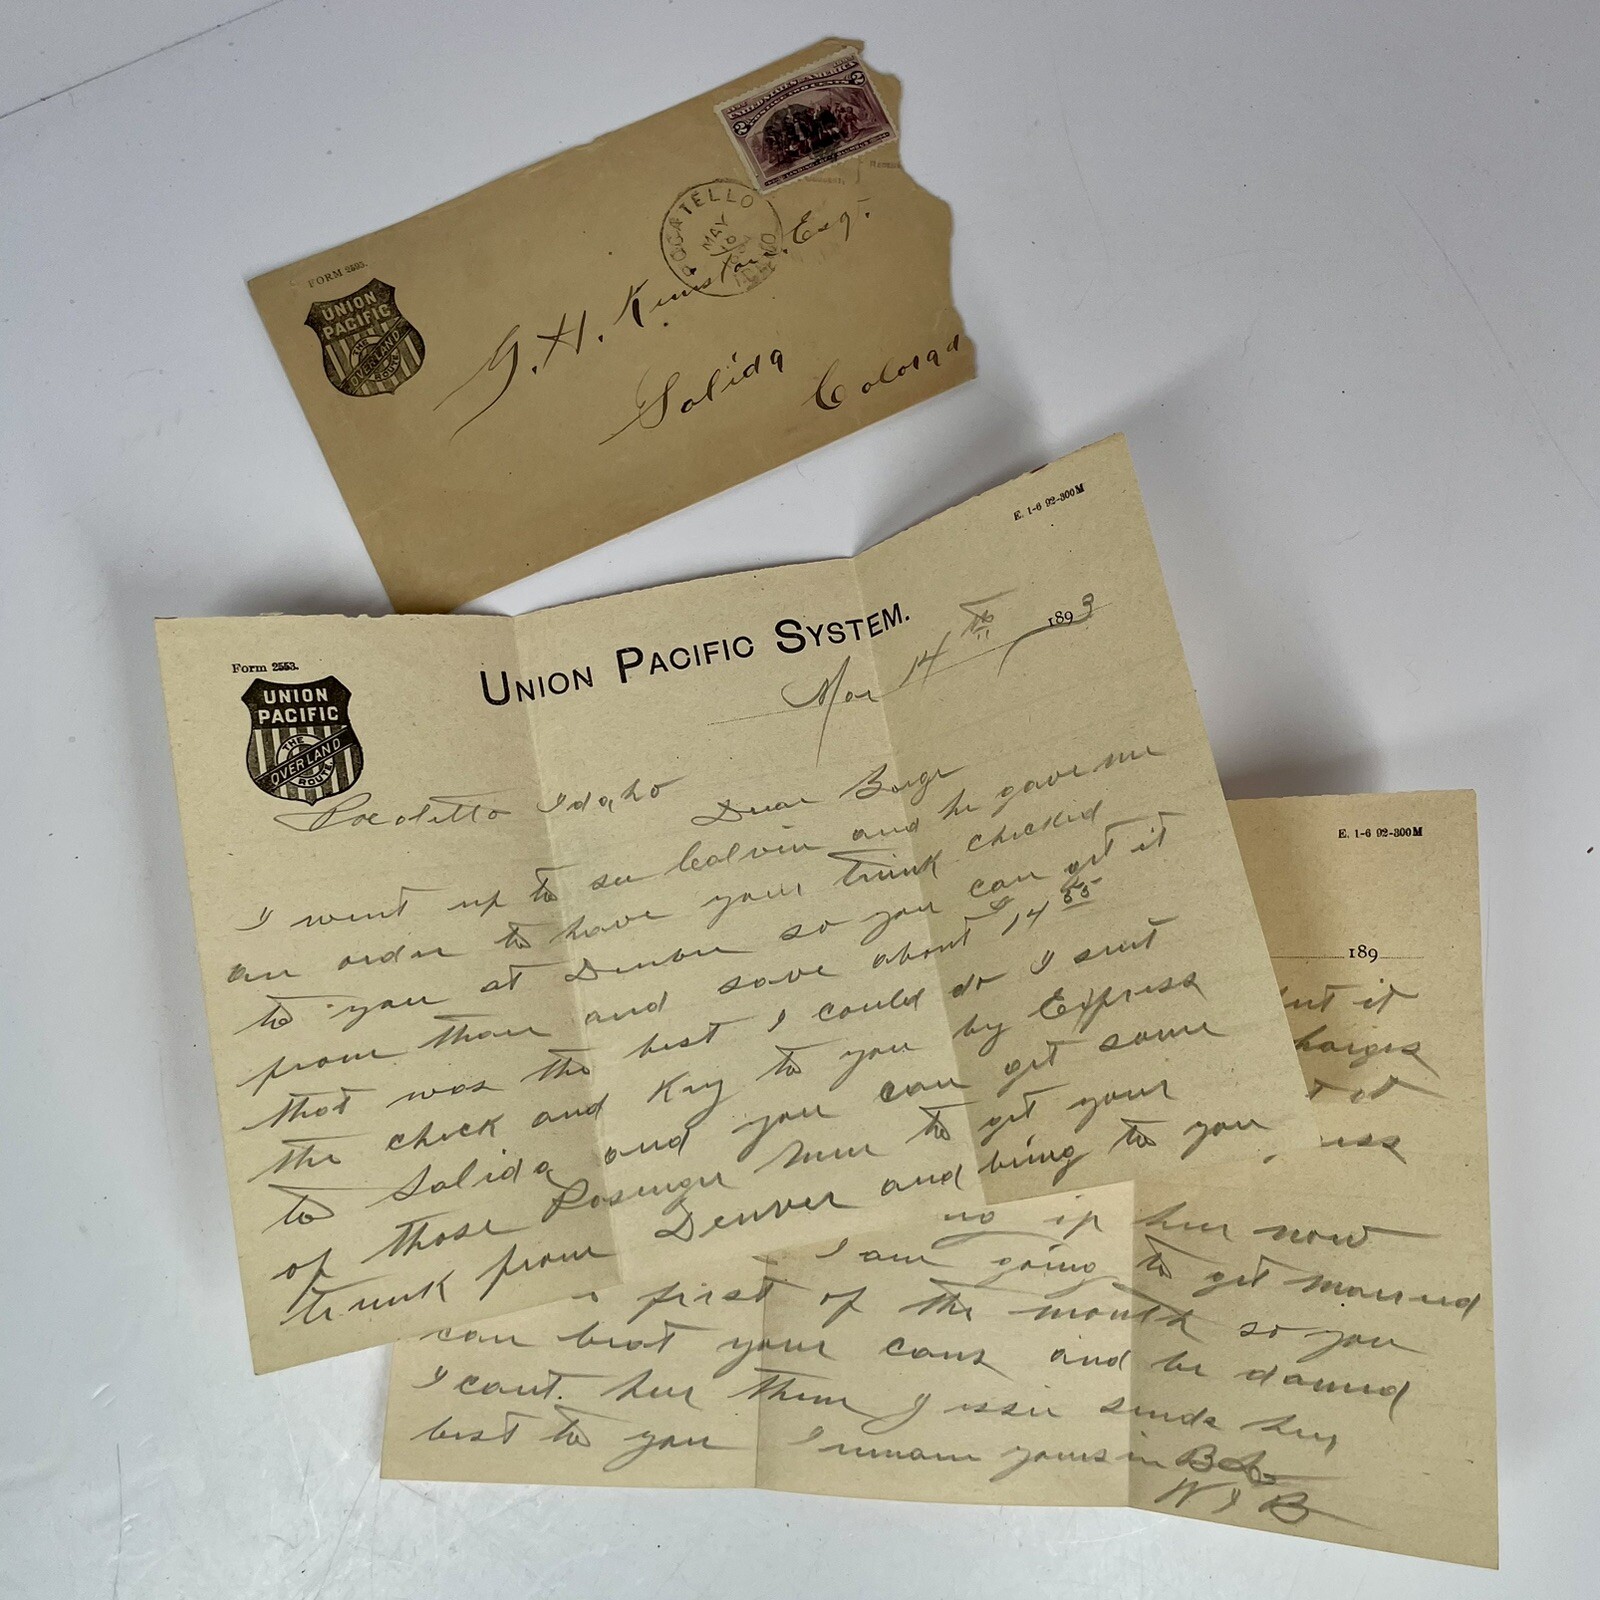 UNITED STATES OF AMERICA
2 2
LANDING OF COLUMBUS
POCATELLO
MAY
FORM 2593.
UNION
PACIFIC
THE
OVERLAND
ROUTE
G. H. Esq.
Salida
Colorad
E. 1-6 92-300M
UNION PACIFIC SYSTEM.
Form 2553.
UNION
PACIFIC
THE
OVERLAND
ROUTE
14th 1893
Pocoletto Idaho
Dear
I went up to see Calvin and he gave me
an order to have your trunk checked
to you at Denver so you can get it
from thar and save about 14
that was the best I could do I sent
the check and Key to you by Express
to Salida and you can get some
of those Pasenger men to get your
trunk from Denver and bring to you
E. 1-6 92-300M
189
it
no ip her now
I am going to get married
first of the month so you
can beat your cans and be damed
I cant. her them Jessie sends her
best to you I remain yours in
W J B